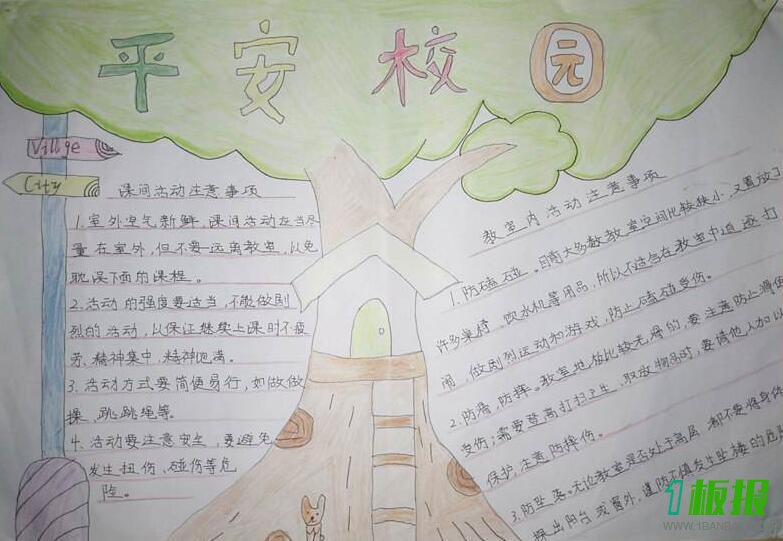 平安校园
Village
City
课间活动注意事项
1.室外空气新鲜,课间活动应当尽
量在室外,但不要远离教室,以免
耽误下面的课程。
2.活动的强度要适当,不能做剧
烈的活动,以保证继续上课时不疲
劳、精神集中、精神饱满。
3.活动方式要简便易行,如做做
操、跳跳绳等。
4.活动要注意安全,要避免
发生扭伤、碰伤等危
险。
教室内活动注意事项
1.防磕碰。目前大多数教室空间比较狭小,又置放了
许多桌椅、饮水机等用品,所以不应在教室中追逐打
闹,做剧烈运动和游戏,防止磕碰受伤。
2.防滑,防摔。教室地板比较光滑的,要注意防止滑倒
受伤;需要登高打扫卫生、取放物品时,要请他人加以
保护,注意防摔伤。
3.防坠落。无论教室是否处于高层,都不要将身体
探出阳台或窗外,谨防不慎发生坠楼的危险
1板报
WWW.1BANBAO